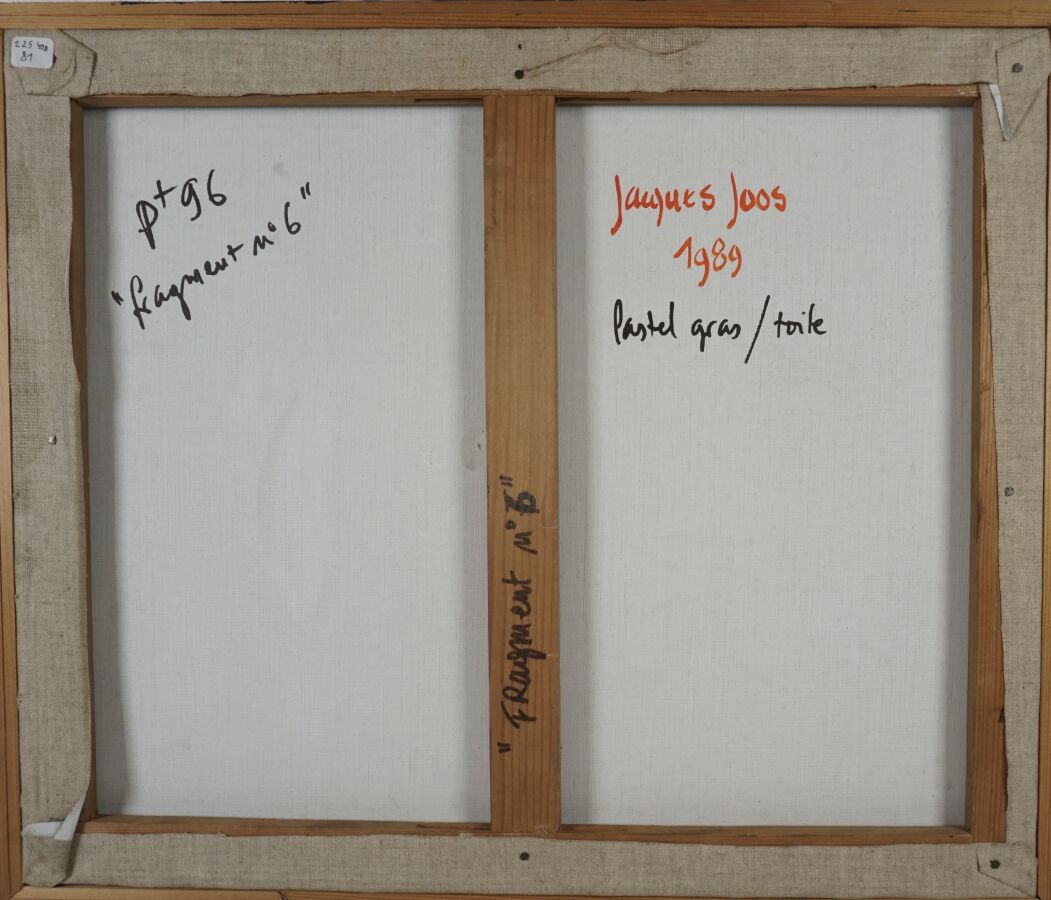 225 408
81
pt 96
"fragment n°6"
Jacques Joos
1989
Pastel gras / toile
"FRAgment n°6"